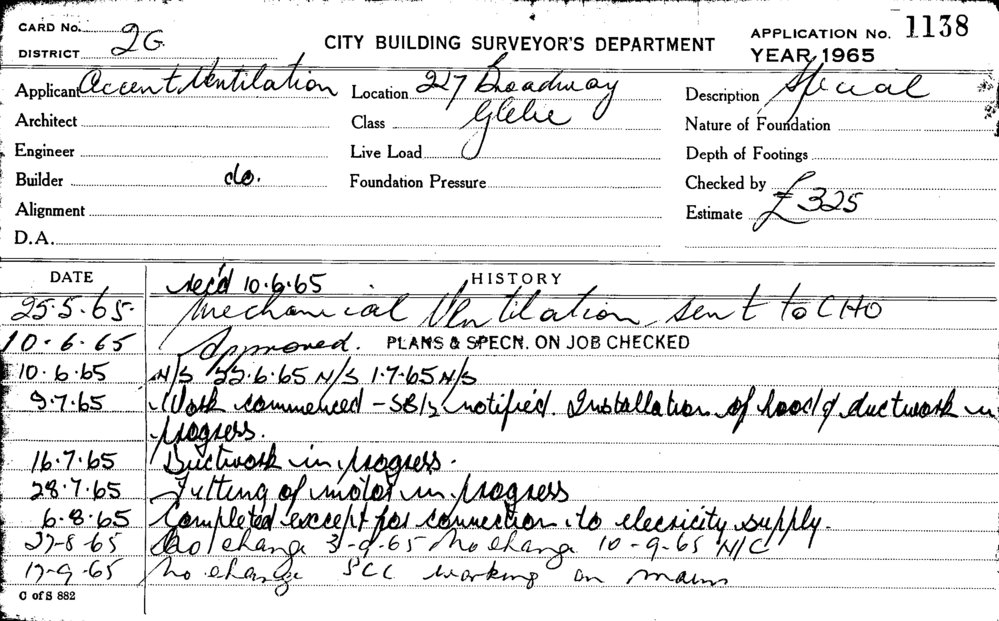 CARD No. 2G
DISTRICT
CITY BUILDING SURVEYOR'S DEPARTMENT
APPLICATION No. 1138
YEAR 1965
Applicant Accent Ventilation
Location 227 Broadway
Glebe
Description Special
Architect
Class
Nature of Foundation
Engineer
Live Load
Depth of Footings
Builder do.
Foundation Pressure
Checked by
Alignment
Estimate £325
D.A.
DATE
HISTORY
rec'd 10.6.65
25.5.65. Mechanical Ventilation sent to CHO
10.6.65 Approved. PLANS & SPECN. ON JOB CHECKED
10.6.65 N/S 22.6.65 N/S 1.7.65 N/S
9.7.65 Work commenced - notified. Installation of hood & ductwork in
progress.
16.7.65 Ductwork in progress.
28.7.65 Fitting of motor in progress
6.8.65 Completed except for connection to elecricity supply.
27-8-65 No change 3-9-65 No change 10-9-65 N/C
17-9-65 No change SCC working on mains
C of S 882